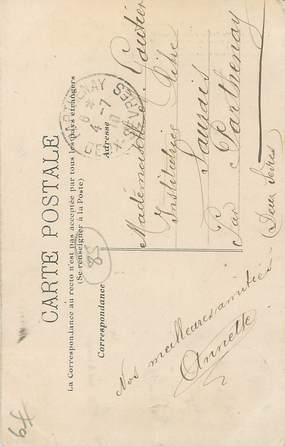 CARTE POSTALE
La Correspondance au recto n'est pas acceptée par tous les pays étrangers
(Se renseigner à la Poste)
Correspondance
Adresse
PARTHENAY
4 -7
Mademoiselle Gautier
Institutrice
Saurais
Par Parthenay
Deux Sèvres
Nos meilleures amitiés
Annette
85